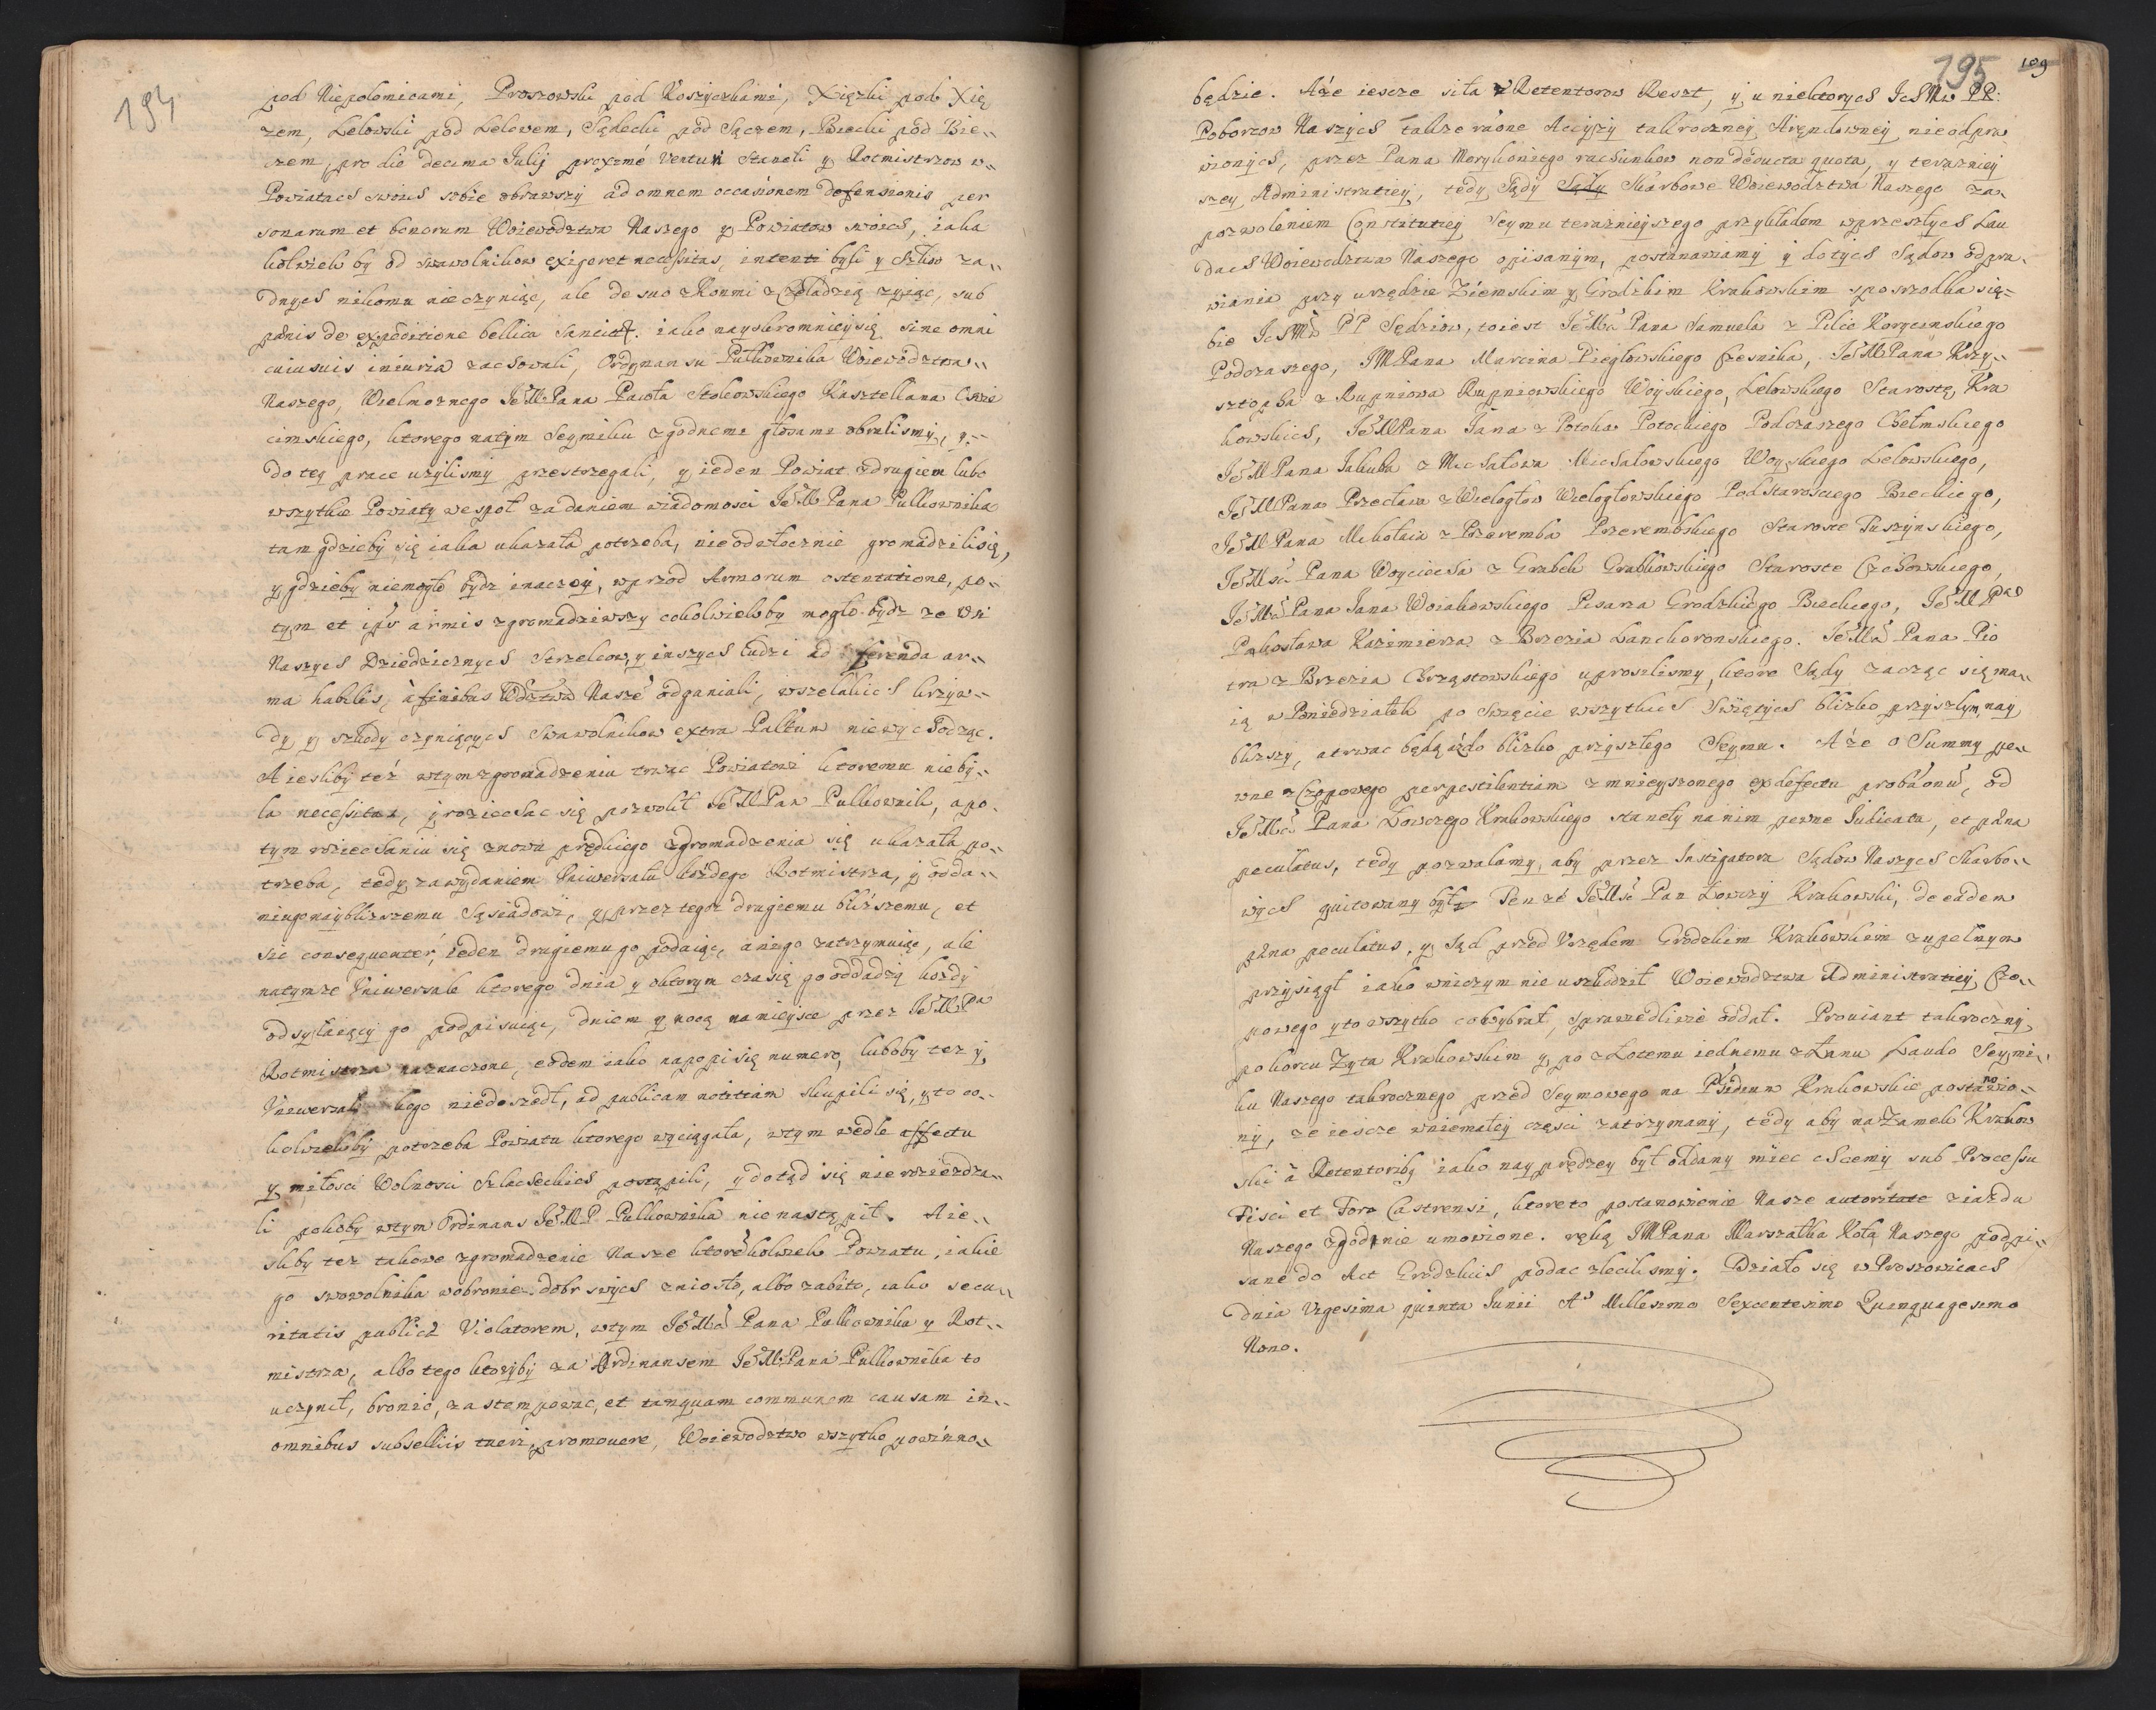 194
pod Niepołomicami, Proszowski pod Koszyczkami, Xięzki pod Xię
zem, Lelowski pod Lelowem, Sądecki pod Sączem, Biecki pod Bie„
czem, pro die decima Julij proxime Venturi stanęli y Rotmistrzow w„
Powiatach swoich sobie obrawszy ad omnem occasionem defensionis per
sonarum et bonorum Woiewodztwa Naszego y Powiatow swoich, iaka
kolwiek by od swawolnikow exigeret necessitas, intenti byli y szkod za„
dnych nikomu nie czyniąc, ale de suo z Konmi z Czeladzią zyiąc, sub
pænis de expeditione bellica sancitis. iako nayskromniey się sine omni
cuiusuis iniuria zachowali, Ordynansu Pułkownika Woiewodztwa„
Naszego, Wielmoznego Je͠M Pana Pawła Stokowskiego Kasztellana Oswie
cimskiego, ktorego na tym Seymiku zgodnemi głosami obralismy, y„
do tey prace uzylismy przestrzegali, y ieden Powiat z drugiem lubo
wszytkie Powiaty wespoł za daniem wiadomosci Je͠M Pana Pulkownika
tam gdzieby się iaka ukazała potrzeba, nieodwłocznie gromadzili się,
y gdzieby niemogło bydz inaczey, wprzod Armorum ostentatione, po„
tym et ipis armis zgromadziwszy cokolwiekby mogło bydz ze Wsi
Naszych Dziedzicznych Strzelcow, y inszych ludzi ad ferenda ar„
ma habiles, a finibus Wdztwa Nasze͠ odganiali, wszelakich krzyw„
dy y szkody czyniących Swawolnikow extra Palatum nie wychodząc.
A iesliby też w tym zgromadzeniu trwac Powiatowi ktoremu nie by„
la necessitas, y roziechac się pozwolił Je͠M Pan Pulkownik, a po„
tym roziechaniu się znowu prędkiego zgromadzenia się ukazała po„
trzeba, tedy za wydaniem Vniwersału kożdego Rotmistrza, y odda„
niu go naybliższemu Sąsiadowi, y przez tegoz drugiemu bliższemu, et
sic consequenter, ieden drugiemu go podaiąc, a niego zatrzymuiąc, ale
na tymze Vniwersale ktorego dnia y o ktorym czasie go oddadzą kożdy
odsyłaiący go podpisuiąc, dniem y nocą na mieysce przez Je͠M Pa
Rotmistrza naznaczone, eodem iako na popisię numero, luboby tez y
Vniwersał kogo niedoszedł, ad publicam notitiam skupili się, y to co„
kolwiekby potrzeba Powiatu ktorego wyciągała, w tym wedle affectu
y miłosci Wolnosci Szlacheckich postąpili, y dotąd się nie rozieżdza„
li pokoby w tym Ordinans Je͠M P Pulkownika nie nastąpił. A ie„
sliby tez takowe zgromadzenie Nasze ktore͠kolwiek Powiatu, iakie
go swowolnika w obronie dobr swych zniosło, albo zabito, iako secu„
ritatis publicæ Violatorem, w tym Je͠Mci Pana Pulkownika y Rot„
mistrza, albo tego ktoryby za Ordinansem Je͠M Pana Pulkownika to
uczynił, bronic, zastempowac, et tanquam communem causam in„
omnibus subselliis tueri, promouere, Woiewodztwo wszytko powinno„
195 109
będzie. A że iescze siła u Retentorow Reszt, y u niektorych IchMw PP:
Poborcow Naszych takze raone Accyzy takroczney Arędowney nieodpra
wionych, przez Pana Morykoniego rachunkow non deducta quota, y terazniey
szey Administratiey, tedy Sądy Sądy Skarbowe Woiewodztwa Naszego za„
pozwoleniem Constitutiey Seymu teraznieyszego przykładem w przeszłych Lau
dach Woiewodztwa Naszego opisanym, postanawiamy y do tych Sądow odpra„
wiania przy urzędzie Ziemskim y Grodzkim Krakowskim z posrzodka sie„
bie IchMċ PP Sędziow, to iest Je͠Mci Pana Samuela z Pilce Korycinskiego
Podczaszego, JM Pana Marcina Pieglowskiego Czesnika, Je͠M Pana Krzy„
sztopha z Rupniowa Rupniowskiego Woyskiego, Lelowskiego Starostę, Kra
kowskich, Je͠M Pana Jana z Potoka Potockiego Podczaszego Chełmskiego
Je͠M Pana Jakuba z Michałowa Michałowskiego Woyskiego Lelowskiego,
Je͠M Pana Przecława z Wielogłow Wielogłowskiego Podstarosciego Bieckiego,
Je͠M Pana Mikołaia z Przeremba Przerembskiego Staroste Tuszynskiego,
Je͠Mści Pana Woyciecha z Grabek Grabkowskiego Staroste Czchowskiego,
Je͠Mċi Pana Jana Woiakowskiego Pisarza Grodzkiego Bieckiego, Je͠M Pna
Pakosława Kazimierza z Brzezia Lanckoronskiego. Je͠Mċi Pana Pio
tra z Brzezia Chrząstowskiego uprosilismy, ktore Sądy zacząc się ma„
ią w Poniedziałek po Swięcie wszytkich Swiętych blizko przyszłym, nay
blizszy, a trwac będą aż do blizko przyszłego Seymu. A że o Summy pe„
wne z Czopowego per pestilentiam zmnieyszonego ex defectu probaonũ, od
Je͠Mċi Pana Łowczego Krakowskiego stanęły na nim pewne Iudicata, et pæna
peculatus, tedy pozwalamy, aby przez Instigatora Sądow Naszych Skarbo„
wych quitowany był, Ten ze Je͠Mść Pan Łowczy Krakowski, de eadem
pæna peculatus, y Sąd przed Vrzędem Grodzkim Krakowskim zupełnym
przysiągł iako w niczym nie uszkodził Woiewodztwa Administratiey Czo„
powego y to wszytko co wybrał, sprawiedliwie oddał. Prouiant takroczny
po korcu Zyta Krakowskim y po złotemu iednemu z Łanu Laudo Seymi„
ku Naszego takrocznego przed Seymowego na Præsidium Krakowskie postanowio„
ny, ze iescze w niemałey częsci zatrzymany, tedy aby na Zamek Krakow
ski â Retentoribq iako nayprędzey był oddany miec chcemy sub Processu
Fisci et Foro Castrensi, ktore to postanowienie Nasze autoritate ziazdu
Naszego zgodnie umowione. ręką JM Pana Marszałka Koła Naszego podpi„
sane do Act Grodzkich podac zlecilismy. Działo się w Proszowicach
Dnia Vigesima quinta Junii Ao Millesimo Sexcentesimo Quinquagesimo
Nono.